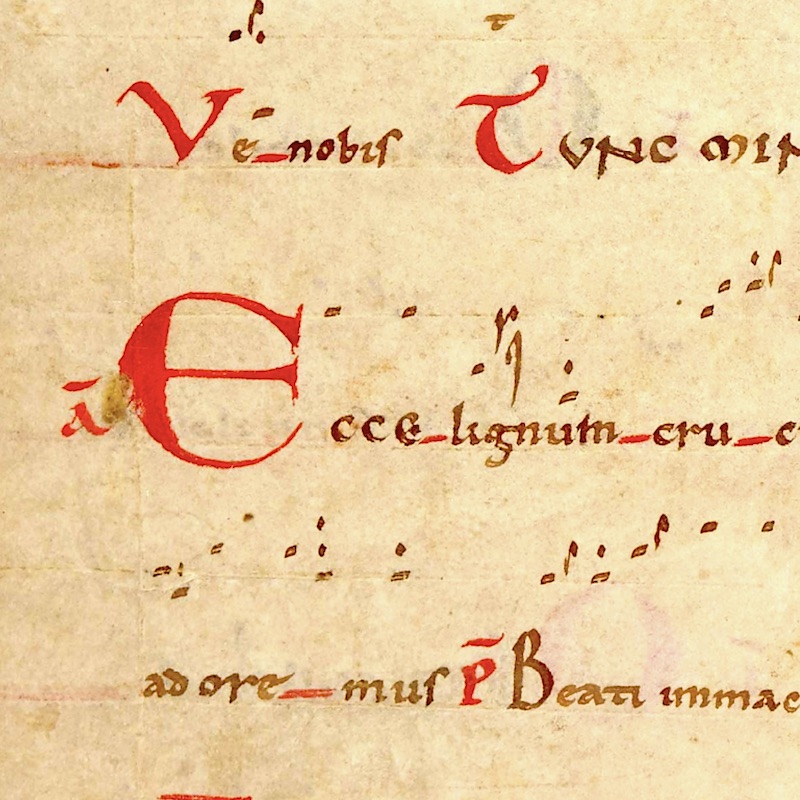 Ve_nobis Tunc min
ā Ecce_lignum_cru_c
adore_mus P̄ Beati immac